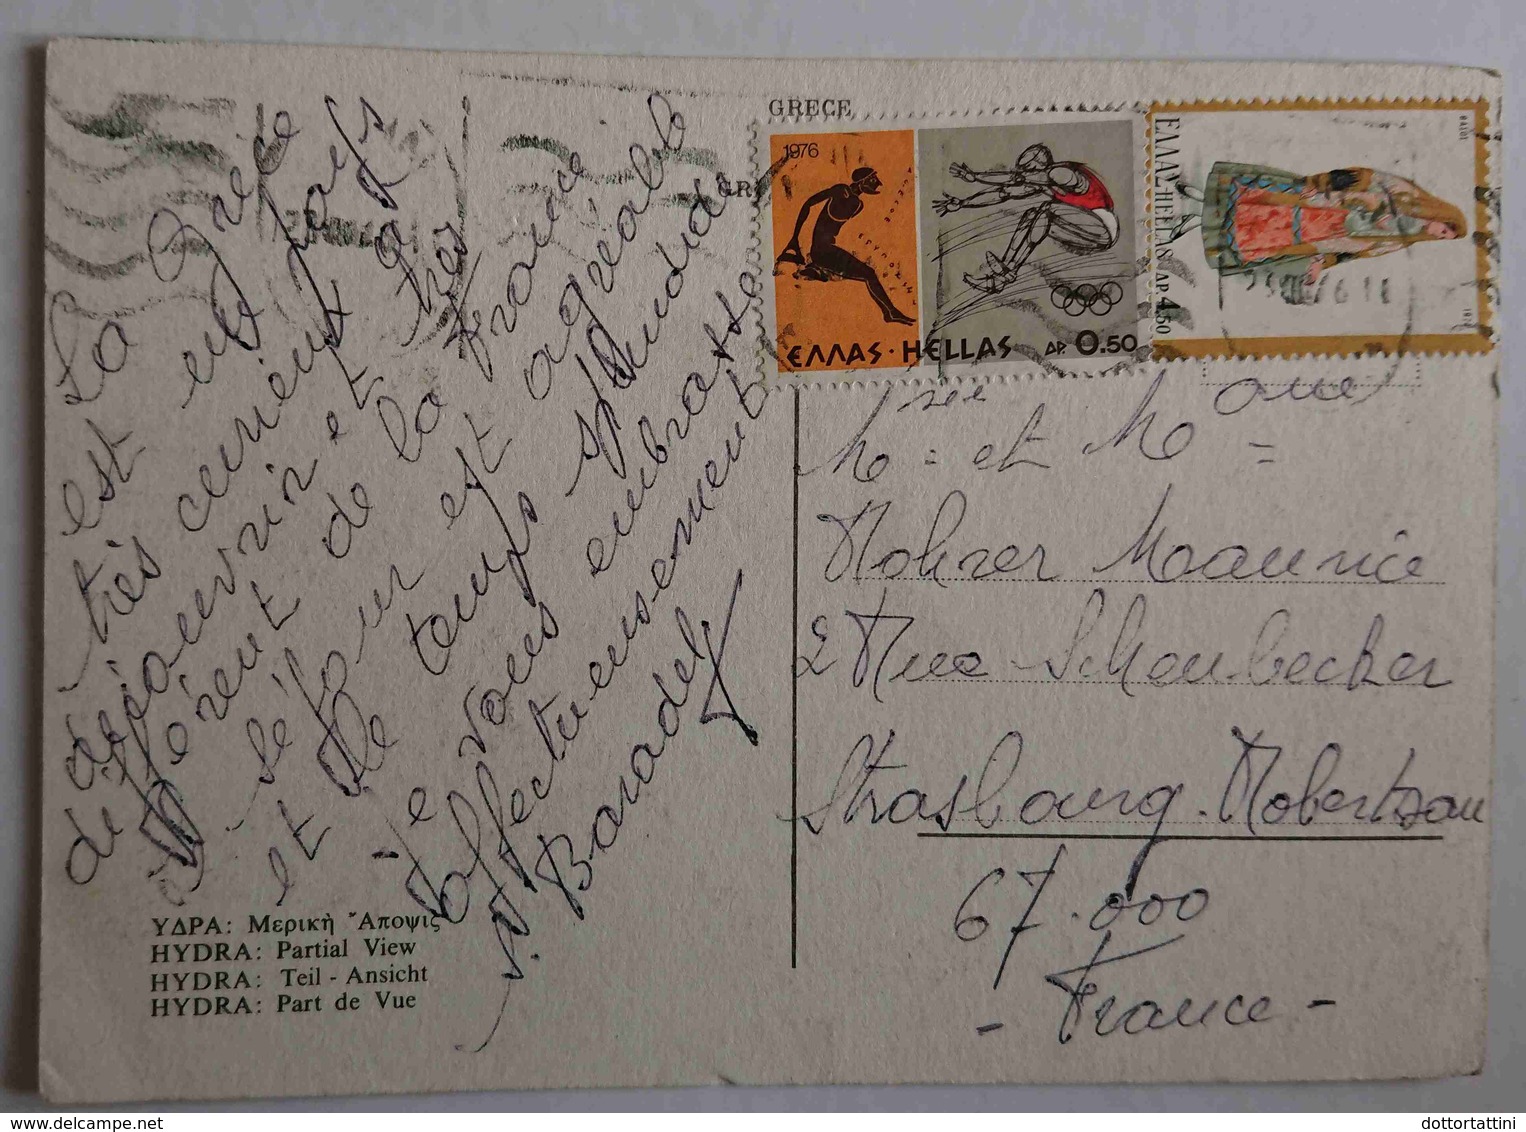 La Grèce
est un pays
très curieux à
découvrir et très
différent de la France
le séjour est agréable
et le temps splendide
je vous embrasse
affectueusement
Baradel
ΥΔΡΑ: Μερικὴ Ἄποψις
HYDRA: Partial View
HYDRA: Teil - Ansicht
HYDRA: Part de Vue
GRECE
GR
1976
ΕΛΛΑΣ · HELLAS ΔΡ. 0.50
ΕΛΛΑΣ-HELLAS ΔΡ. 4.50
M et M
Rohrer Maurice
2 Rue Schoubecker
Strasbourg. Robertsau
67.000
- France -
dottortattini